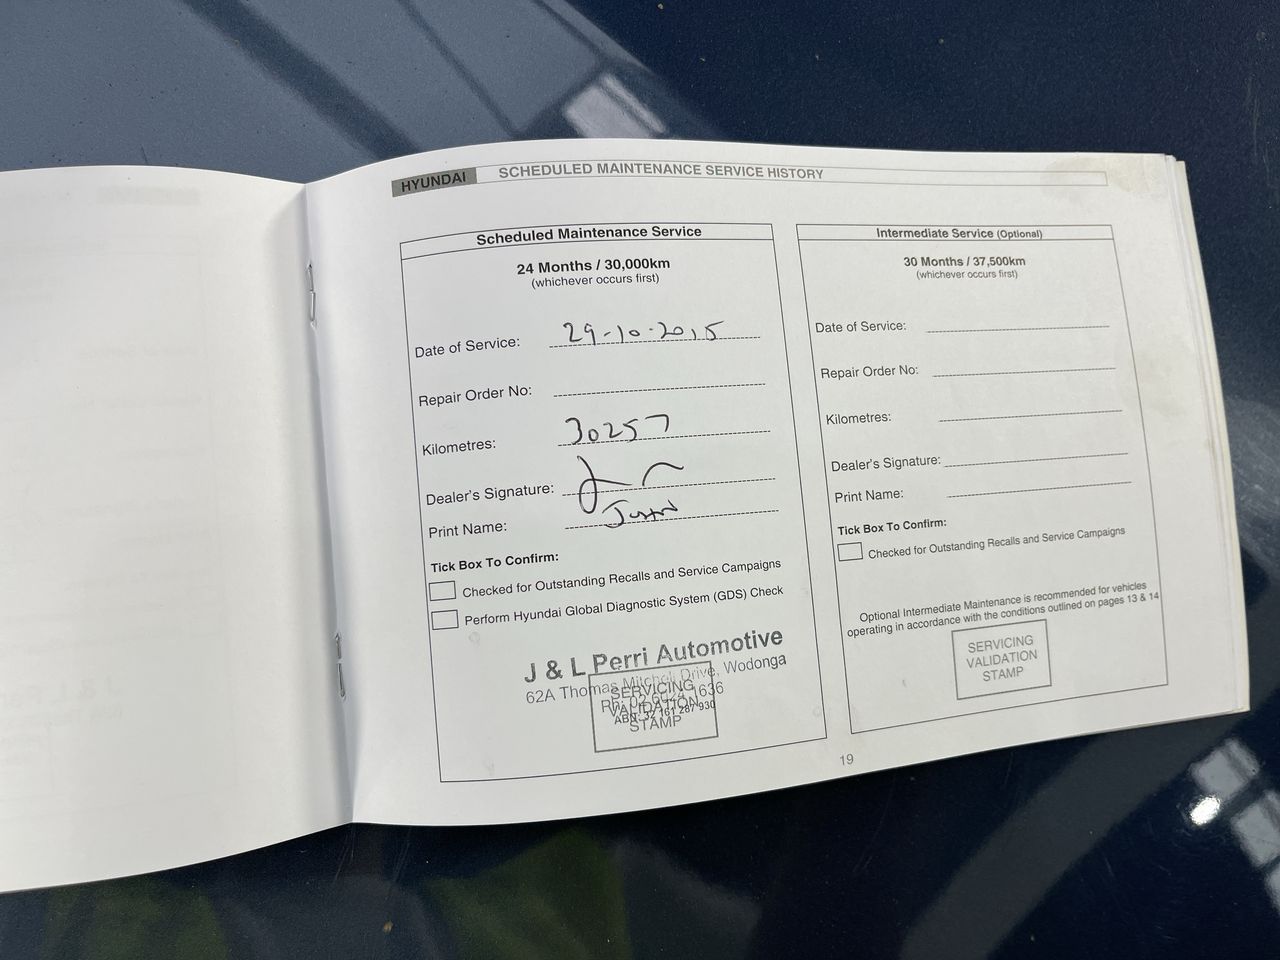 HYUNDAI SCHEDULED MAINTENANCE SERVICE HISTORY
Scheduled Maintenance Service
24 Months / 30,000km
(whichever occurs first)
Date of Service: 29-10-2015
Repair Order No:
Kilometres: 30257
Dealer's Signature:
Print Name: Justin
Tick Box To Confirm:
Checked for Outstanding Recalls and Service Campaigns
Perform Hyundai Global Diagnostic System (GDS) Check
J & L Perri Automotive
62A Thomas Mitchell Drive, Wodonga
SERVICING
VALIDATION
STAMP
Intermediate Service (Optional)
30 Months / 37,500km
(whichever occurs first)
Date of Service:
Repair Order No:
Kilometres:
Dealer's Signature:
Print Name:
Tick Box To Confirm:
Checked for Outstanding Recalls and Service Campaigns
Optional Intermediate Maintenance is recommended for vehicles
operating in accordance with the conditions outlined on pages 13 & 14
SERVICING
VALIDATION
STAMP
19